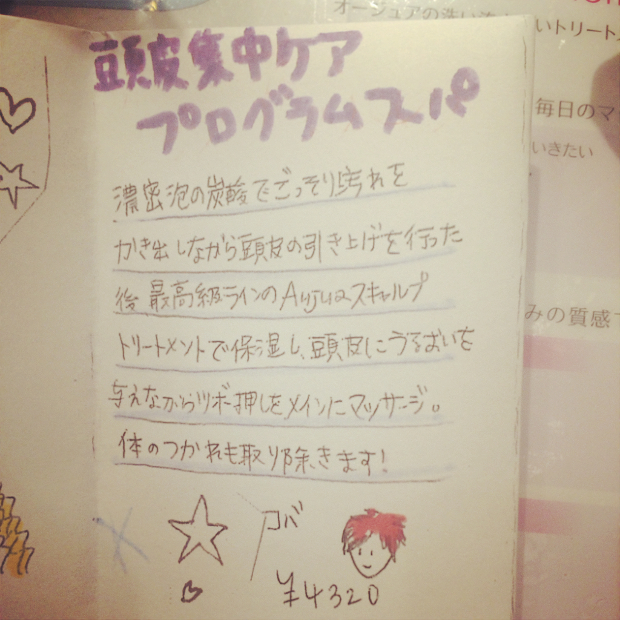 頭皮集中ケア
プログラムスパ
濃密泡の炭酸でごっそり汚れを
かき出しながら頭皮の引き上げを行った
後 最高級ラインのAujuaスキャルプ
トリートメントで保湿し、頭皮にうるおいを
与えながらツボ押しをメインにマッサージ。
体のつかれも取り除きます!
コバ
¥4320
オージュアの洗い流
いトリート
毎日のマ
いきたい
みの質感